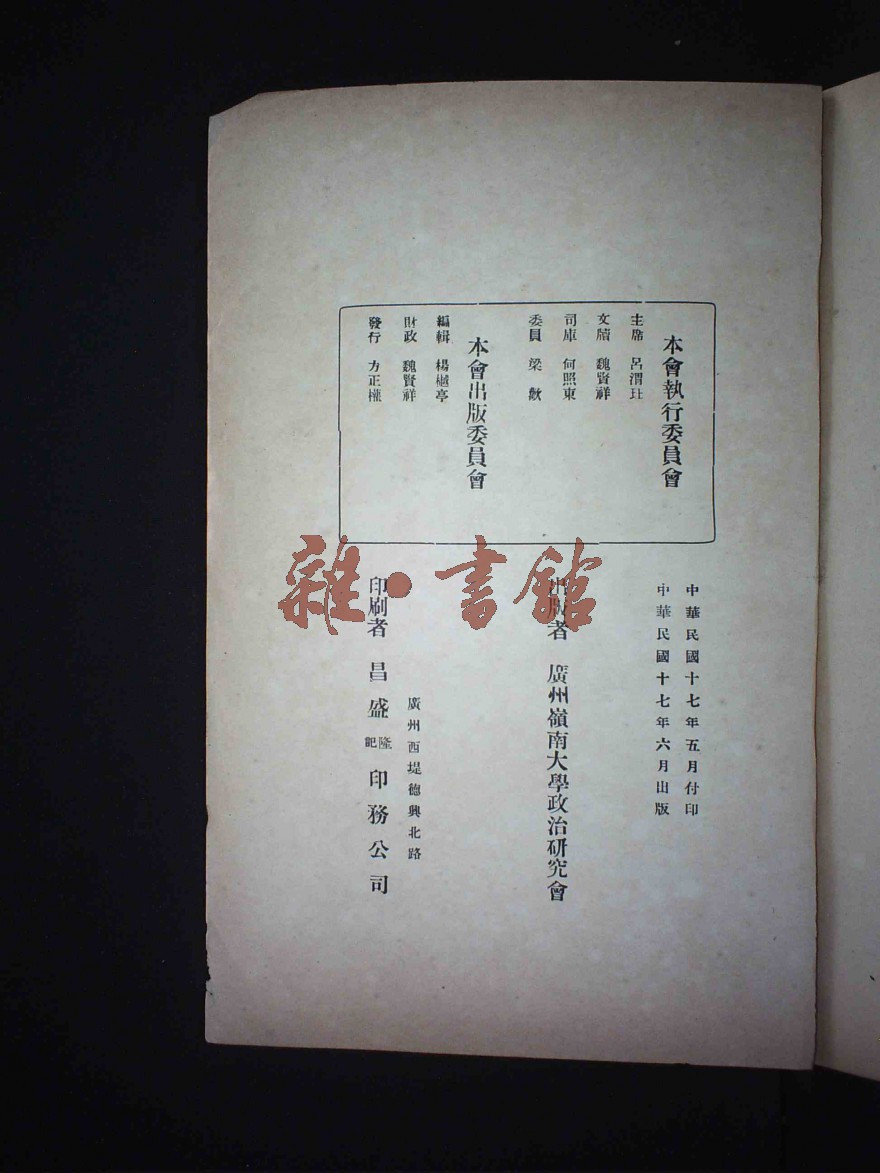 本會執行委員會
主席 呂渭
文牘 魏賢祥
司庫 何照東
委員 梁
本會出版委員會
編輯 楊樾亭
財政 魏賢祥
發行 方正權
中華民國十七年五月付印
中華民國十七年六月出版
出版者 廣州嶺南大學政治研究會
廣州西堤德興北路
印刷者 昌盛隆記印務公司
雜·書館